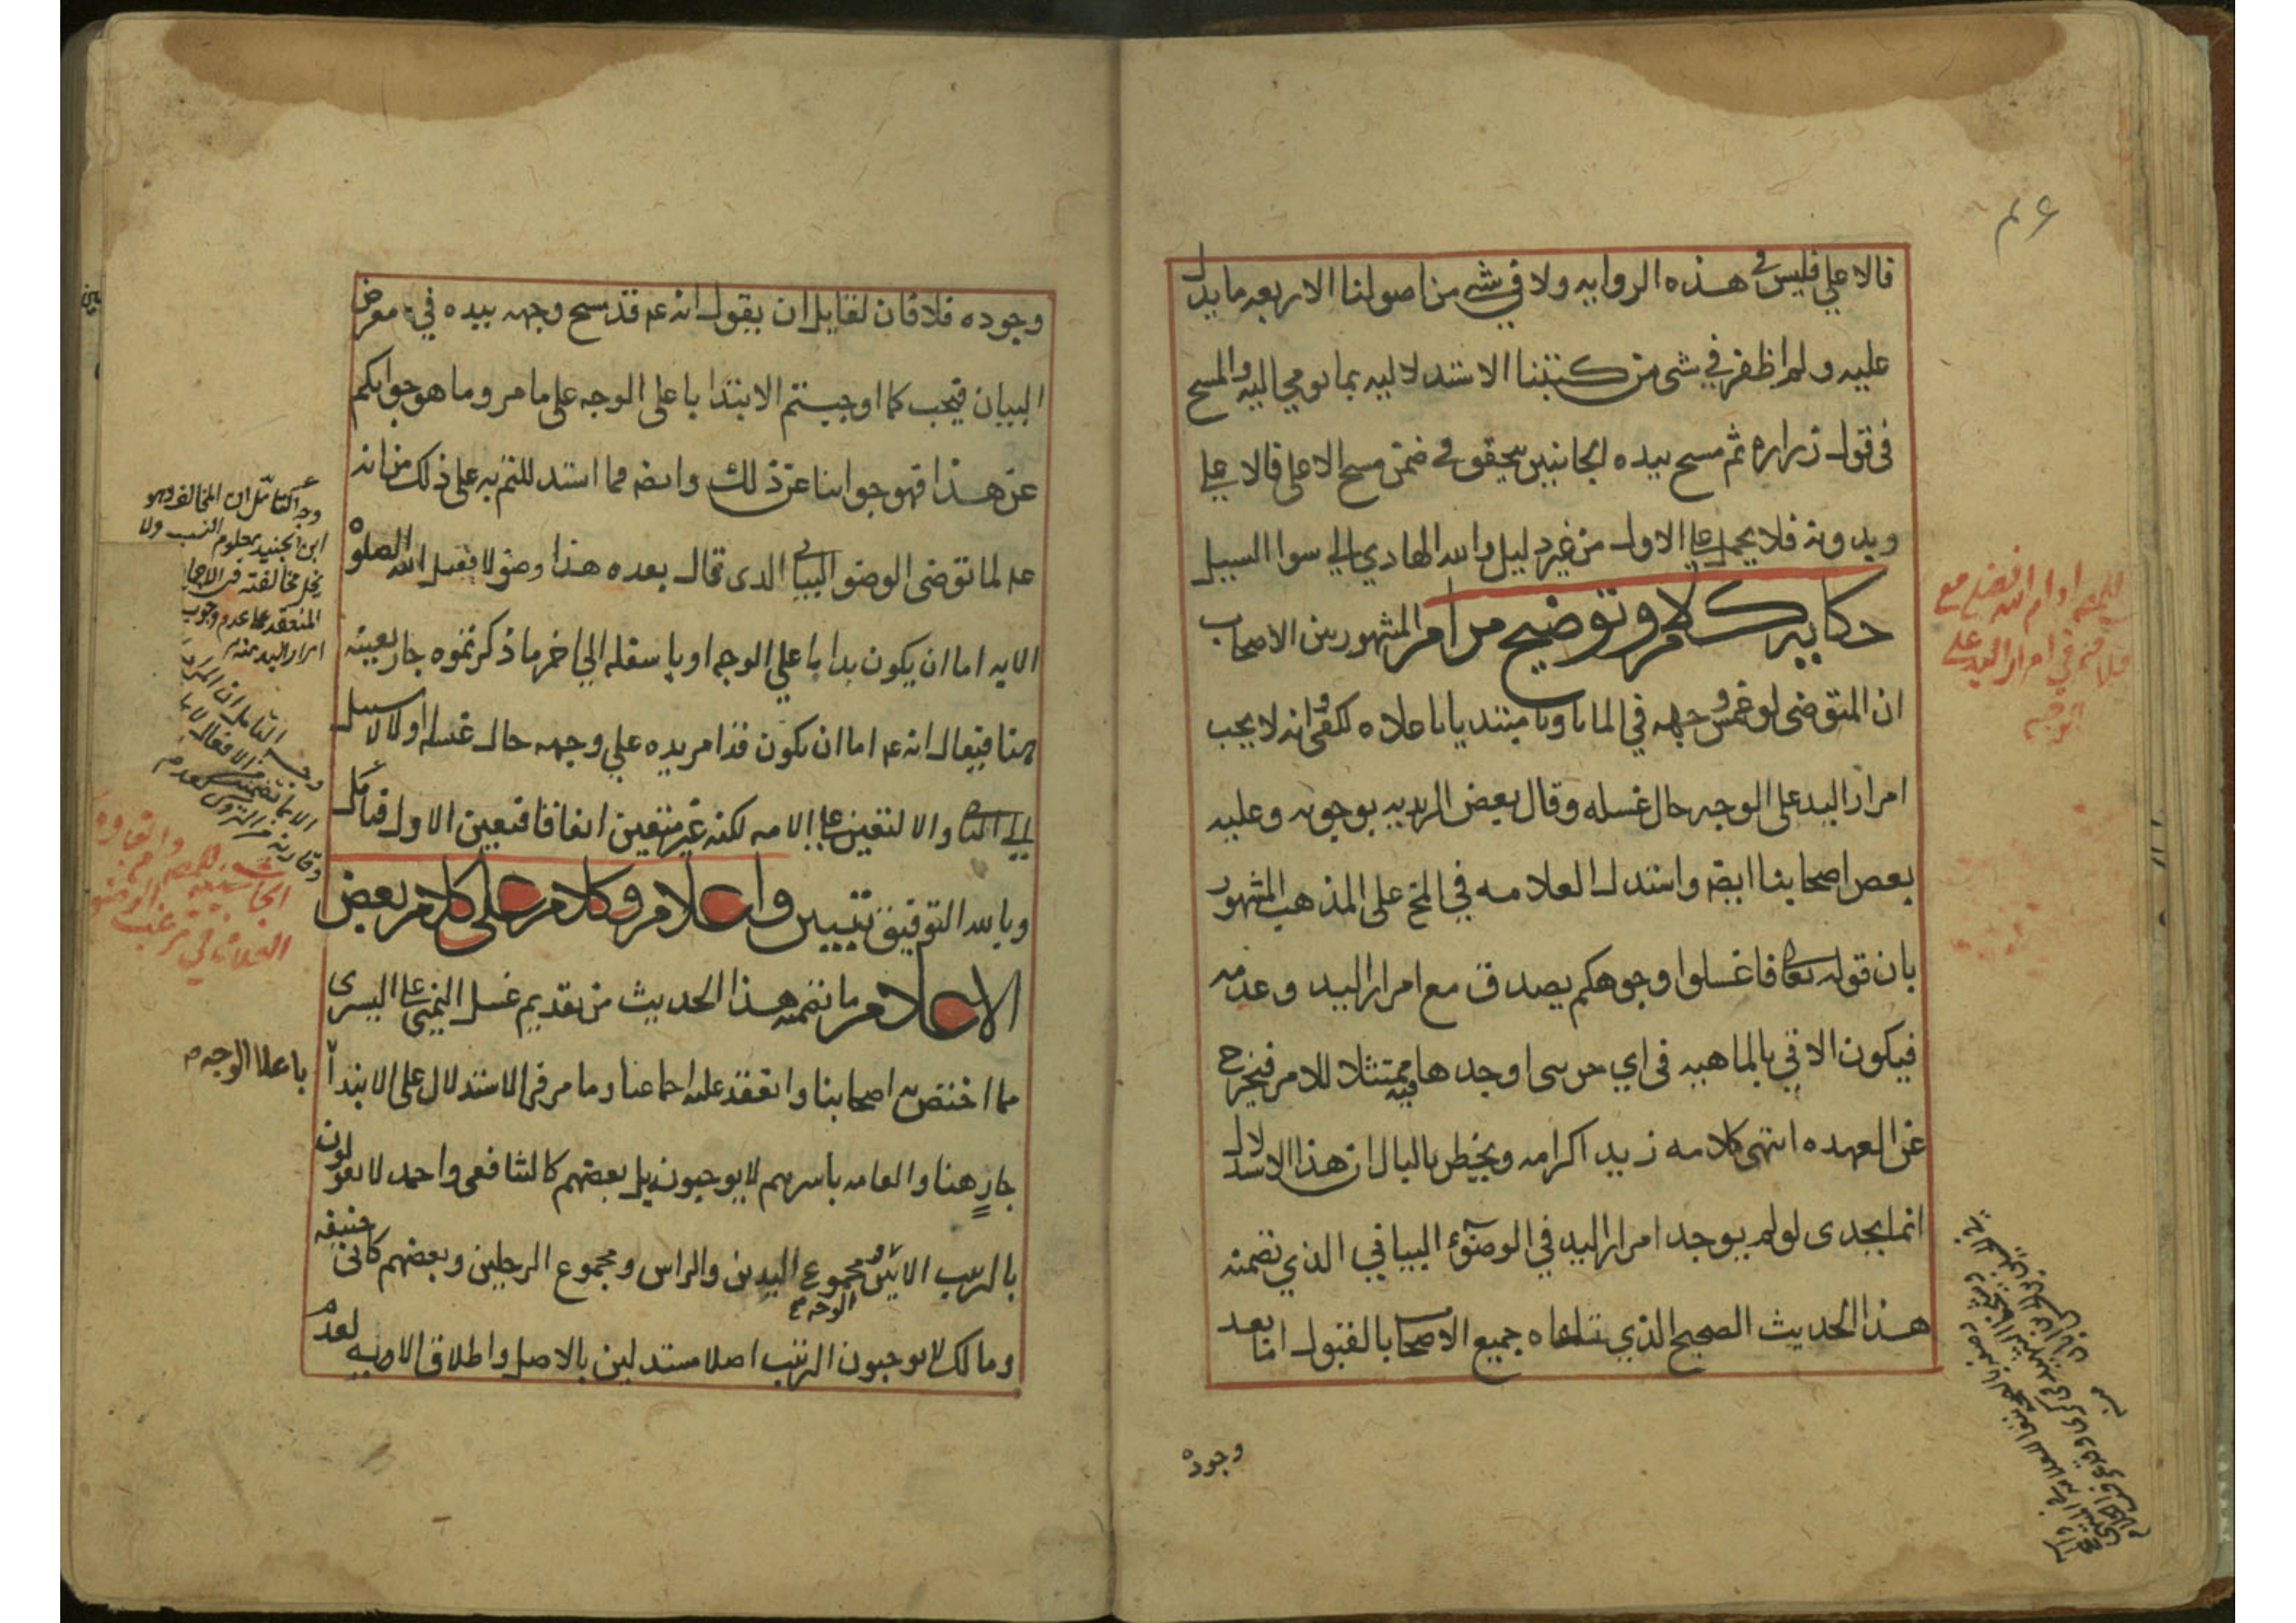 فالاعلي فليس في هذه الروايه ولا في شي من اصولنا الاربعه ما يدل
عليه ولم اظفر في شي من كتبنا الاستدلاليه بما يومي اليه والمسح
في قول زراره ثم مسح بيده الجانبين يتحقق في ضمن مسح الاعلي فالاعلي
وبدونه فلا يحمل علي الاول من غير دليل والله الهادي الي سوا السبيل
حكايه كلام وتوضيح مرام المشهور بين الاصحاب
ان المتوضى لو غمس وجهه في الما ناويا مبتديا باعلاه لكفي وانه لا يجب
امرار اليد على الوجه حال غسله وقال بعض الزيديه بوجوبه وعليه
بعض اصحابنا ايضه واستدل العلامه في المخ على المذهب المشهور
بان قوله تعالى فاغسلوا وجوهكم يصدق مع امرار اليد وعدمه
فيكون الاتي بالماهيه في اي جزئي اوجدها فيه ممتثلا للامر فيخرج
عن العهده انتهى كلامه زيد اكرامه ويخطر بالبال ان هذا الاستدلال
انما يجدى لو لم يوجد امرار اليد في الوضوء البياني الذي تضمنه
هذا الحديث الصحيح الذي تلقاه جميع الاصحاب بالقبول اما بعد
وجوده
وجوده فلا فان لقايل ان يقول انه عم قد مسح وجهه بيده في معرض
البيان فيجب كما اوجبتم الابتدا باعلى الوجه على ما مر وما هو جوابكم
عن هذا فهو جوابنا عن ذلك وايضه فما استدللتم به على ذلك من انه
عم لما توضى الوضو البياني الذى قال بعده هذا وضو لا يقبل الله الصلوه
الا به اما ان يكون بدا باعلي الوجه او باسفله الي اخر ما ذكرتموه جار بعينه
هنا فيقال انه عم اما ان يكون قد امر يده علي وجهه حال غسله او لا لا سبيل
الي الثاني والا لتعين علي الامه لكنه غير متعين اتفاقا فتعين الاول فتامل
وبالله التوفيق تبيين واعلام وكلام على كلام بعض
الاعلام ما تضمنه هذا الحديث من تقديم غسل اليمني علي اليسرى
مما اختص به اصحابنا وانعقد عليه اجماعنا وما مر في الاستدلال على الابتدا
باعلا الوجه
جار هنا والعامه باسرهم لا يوجبونه بل بعضهم كالشافعى واحمد لا يقولون
بالترتيب الا بين الوجه ومجموع اليدين والراس ومجموع الرجلين وبعضهم كابى حنيفه
ومالك لا يوجبون الترتيب اصلا مستدلين بالاصل واطلاق الايه لعدم
وجه التامل ان المخالف وهو
ابن الجنيد معلوم النسب ولا
يخل مخالفته في الاجماع
المنعقد على عدم وجوب
امرار اليد